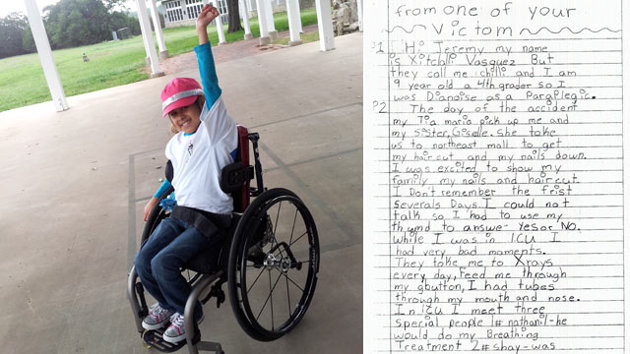 from one of your
Victom
P1 Hi Jeremy my name
is Xitchli Vasquez But
they call me chilli and I am
9 year old a 4th grader so I
was Dianoise as a Paraplegic.
P2 The day of the accident
my Tia maria pick up me and
my Sister, Giselle. She take
us to northeast mall to get
my hair cut and my nails down.
I was excited to show my
family my nails and haircut.
I Don't remember the frist
severals Days. I could not
talk so I had to use my
thumd to answe- Yes or No.
While I was in ICU I
had very bad moments.
They take me to Xrays
every day, Feed me through
my gbutton, I had tubes
through my mouth and nose.
In ICU I meet three
special people 1# nathanil-he
would do my Breathing
Treatment 2# shay-was